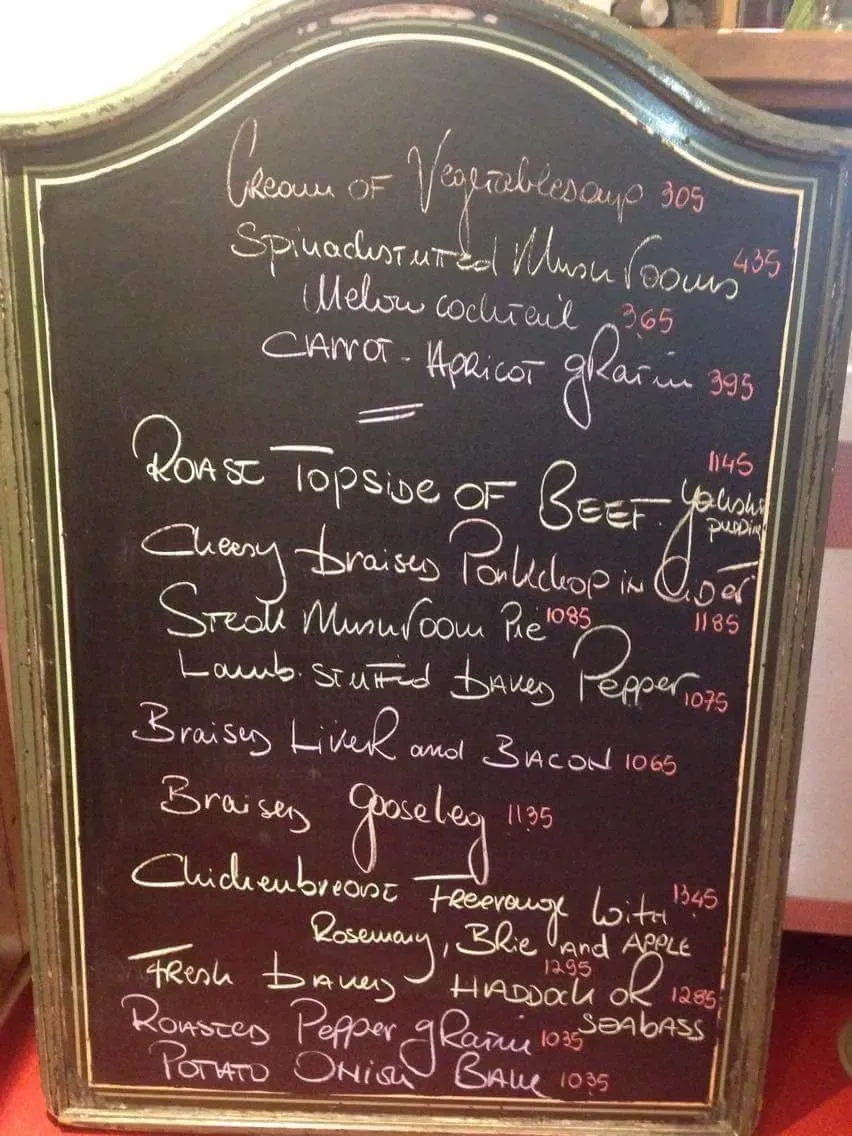 Cream of Vegetablesoup 305
Spinachstuffed Mushrooms 435
Melon cocktail 365
Carrot - Apricot gRatin 395
Roast Topside of Beef. 1145
pudding
Cheesy braised Porkchop in Cider 1185
Steak Mushroom Pie 1085
Lamb. stuffed baked Pepper 1075
Braised Liver and Bacon 1065
Braised gooseleg 1135
Chickenbreast Freerange with 1345
Rosemary, Brie and APPLE
Fresh baked HADDOCK 1295 or 1285
SEABASS
Roasted Pepper gRatin 1035
Potato Onion Bake 1035